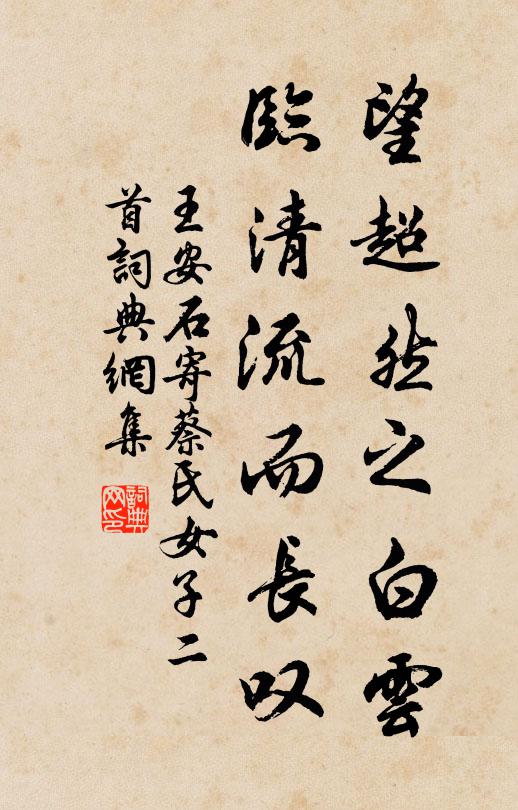 望超然之白雲
臨清流而長叹
王安石寄蔡氏女子二
首詞典網集
詞典网印